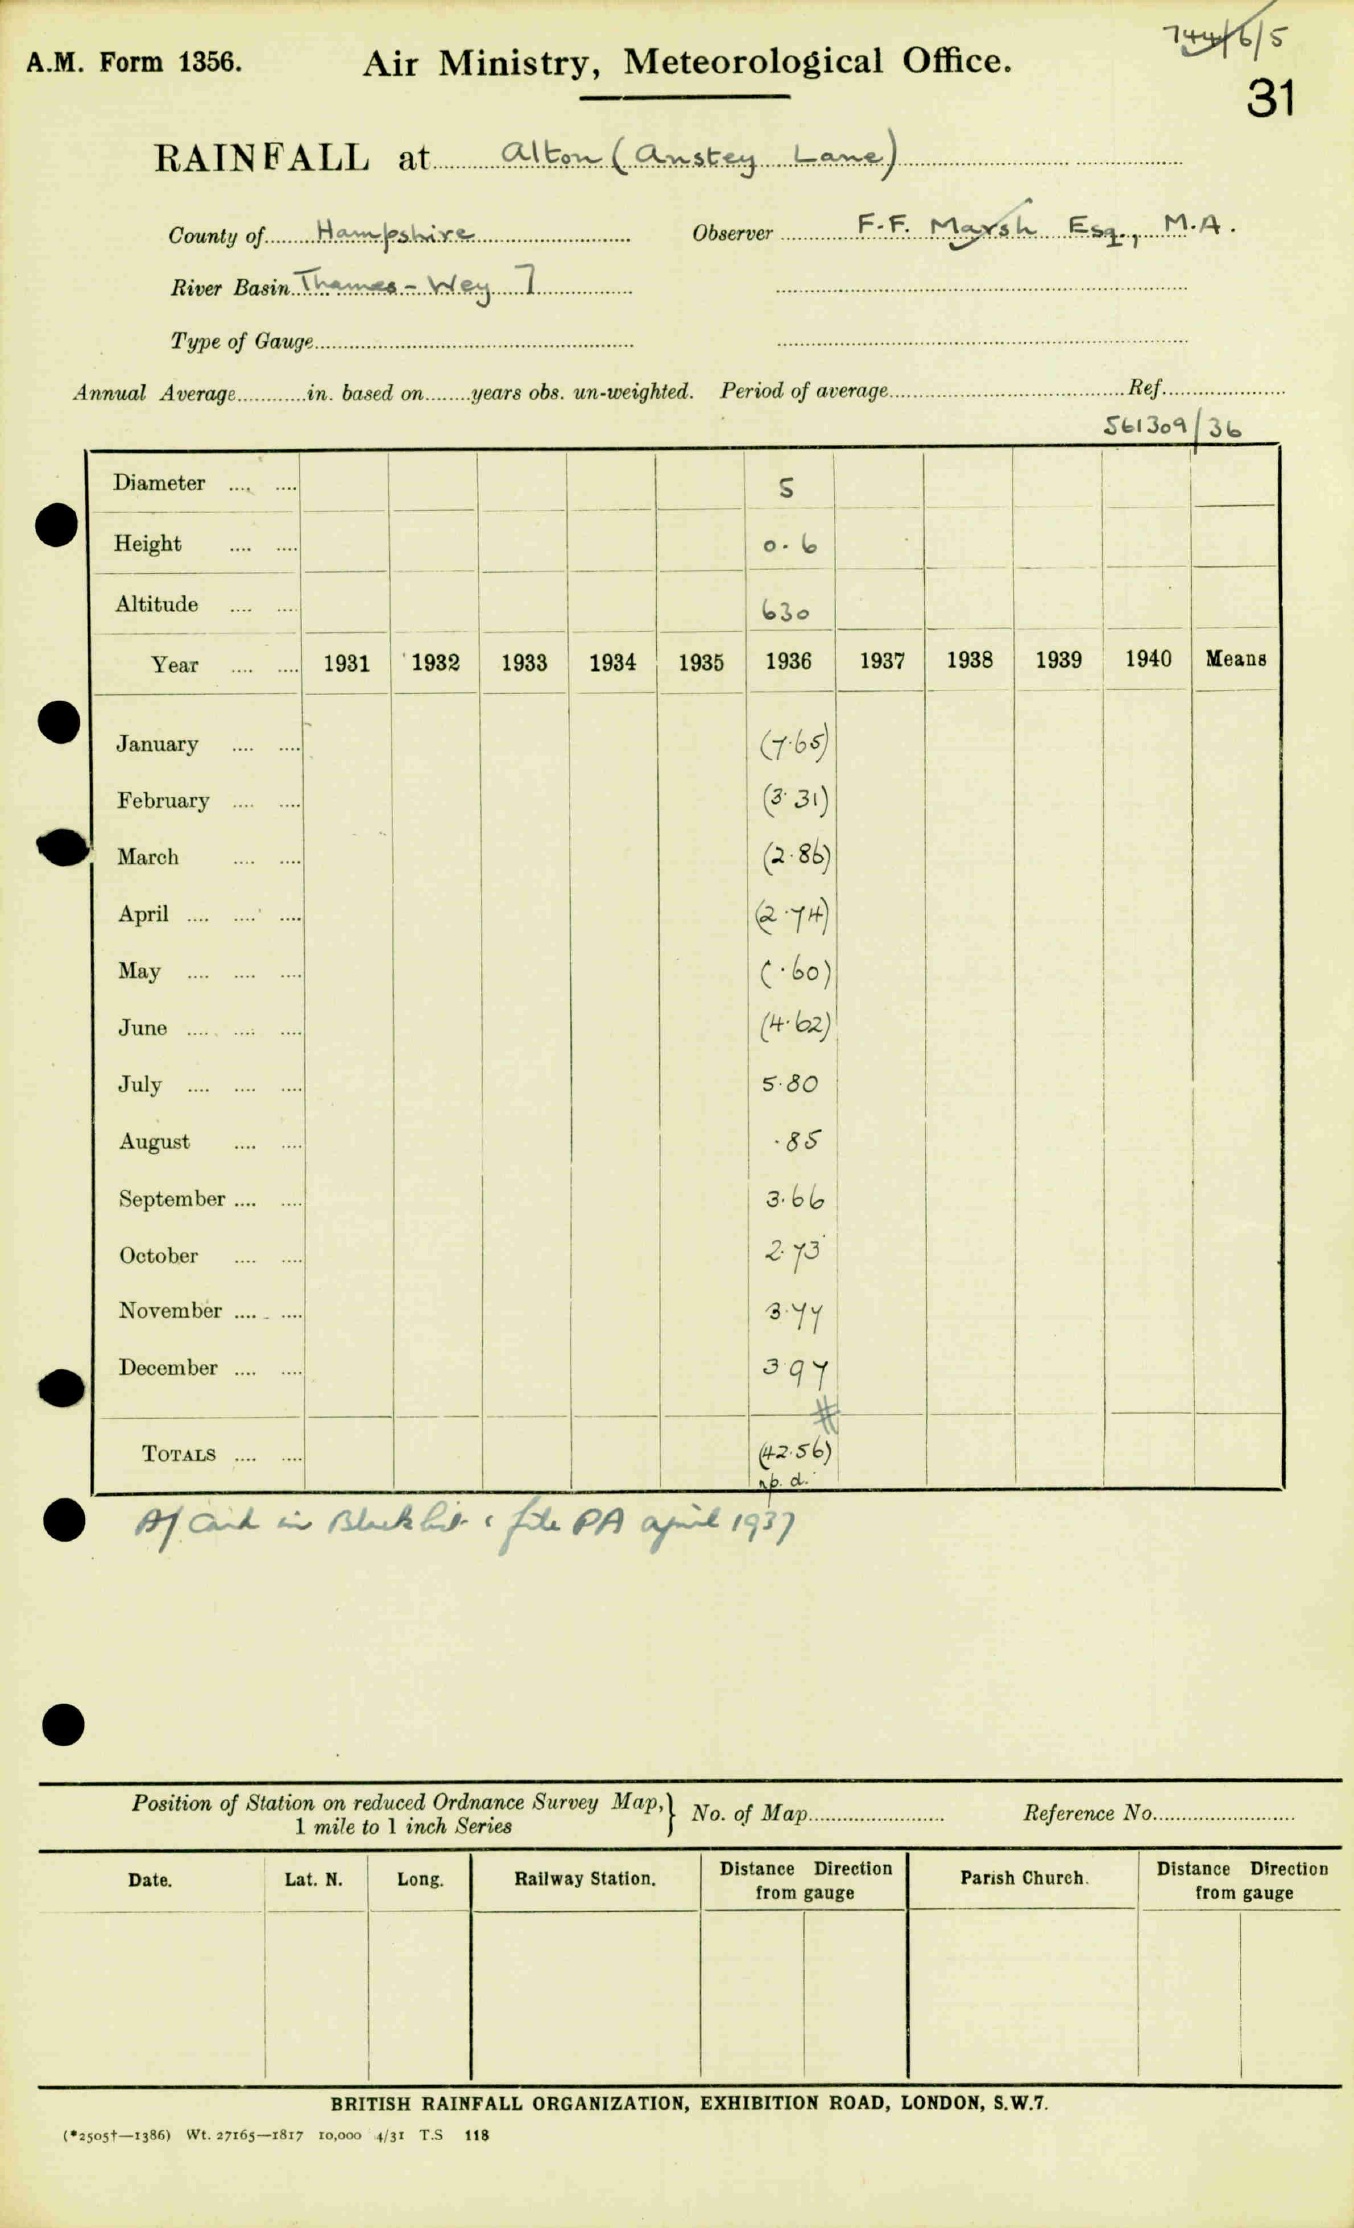 744/6/5
A.M. Form 1356.
Air Ministry, Meteorological Office.
31
RAINFALL at Alton (Anstey Lane)
County of Hampshire Observer F.F. Marsh Esq., M.A.
River Basin Thames - Wey 7
Type of Gauge
Annual Average in. based on years obs. un-weighted. Period of average Ref.
561309/36
Diameter 5
Height 0.6
Altitude 630
Year 1931 1932 1933 1934 1935 1936 1937 1938 1939 1940 Means
January (7.65)
February (3.31)
March (2.86)
April (2.74)
May (.60)
June (4.62)
July 5.80
August .85
September 3.66
October 2.73
November 3.77
December 3.97
#
TOTALS (42.56)
Card in file PA april 1937
Position of Station on reduced Ordnance Survey Map, } No. of Map Reference No.
1 mile to 1 inch Series
Date. Lat. N. Long. Railway Station. Distance Direction from gauge Parish Church. Distance Direction from gauge
BRITISH RAINFALL ORGANIZATION, EXHIBITION ROAD, LONDON, S.W.7.
(*2505†—1386) Wt. 27165—1817 10,000 4/31 T.S 118